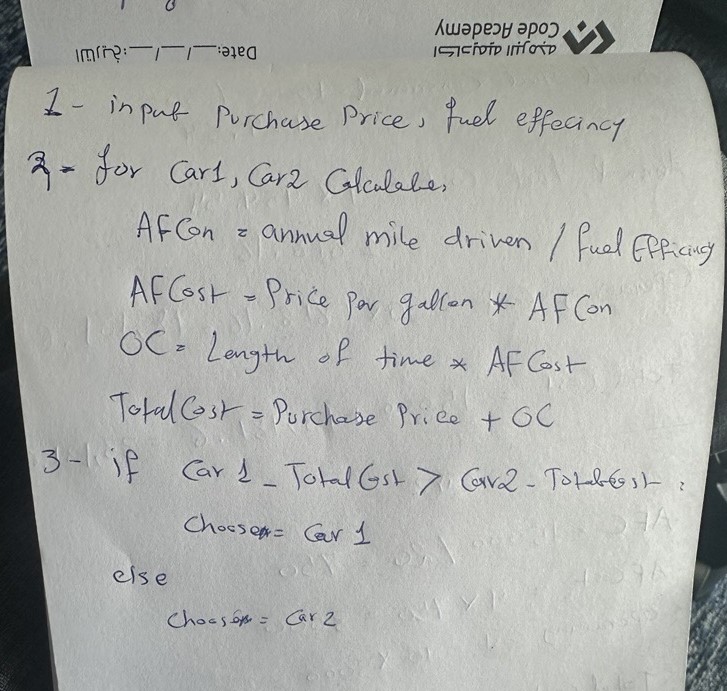 Code Academy
أكاديمية البرمجة
Date:__/__/__:التاريخ
1- input Purchase Price, fuel effecincy
2- for Car1, Car2 Calculate,
AFCon = annual mile driven / fuel Efficincy
AFCost = Price par gallon * AFCon
OC = Length of time * AFCost
Total Cost = Purchase Price + OC
3- if Car 1 _ Total Cost > Car2 - Total Cost :
Choosen = Car 1
else
Choosen = Car 2